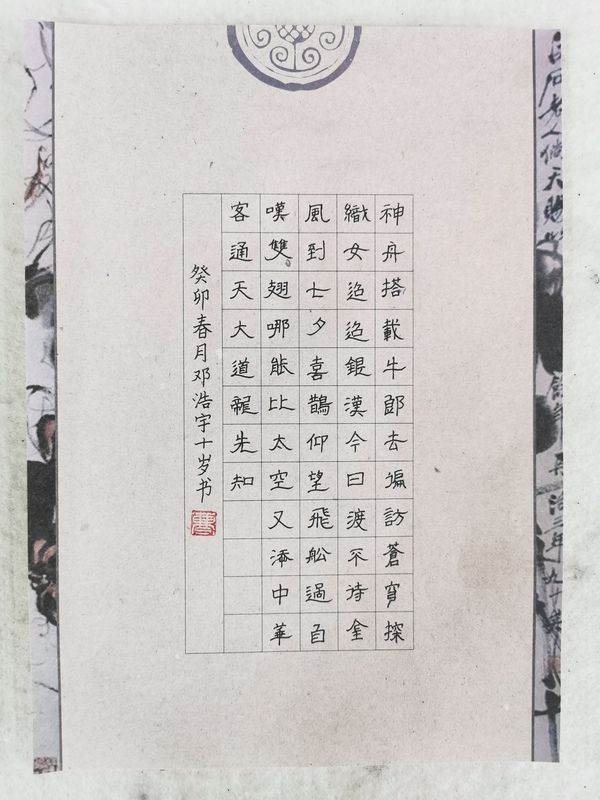 神舟搭載牛郎去遍訪蒼穹探
織女迢迢銀漢今日渡不待金
風到七夕喜鵲仰望飛船過自
嘆雙翅哪能比太空又添中華
客通天大道龍先知
癸卯春月邓浩宇十岁书